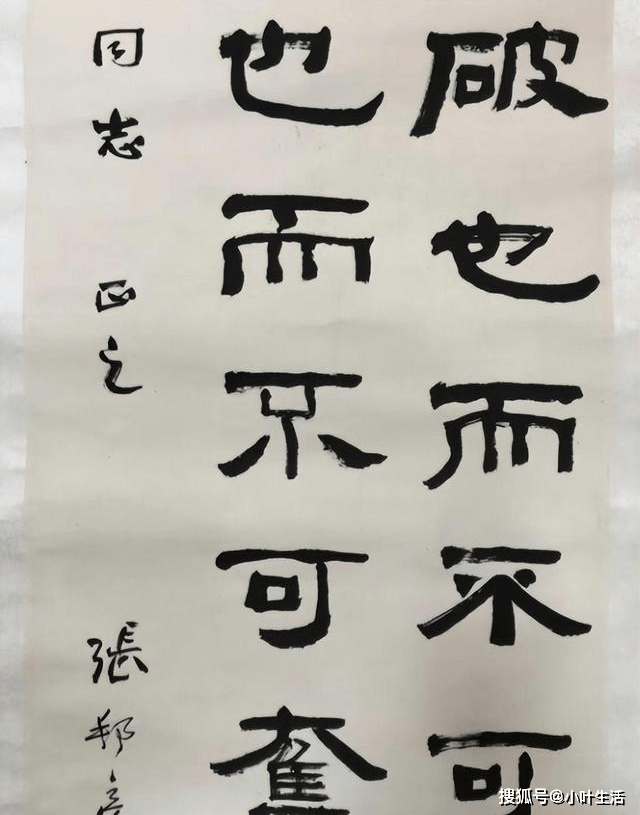 破也而不可
也而不可奮
同志 正之 張邦彥
搜狐号@小叶生活